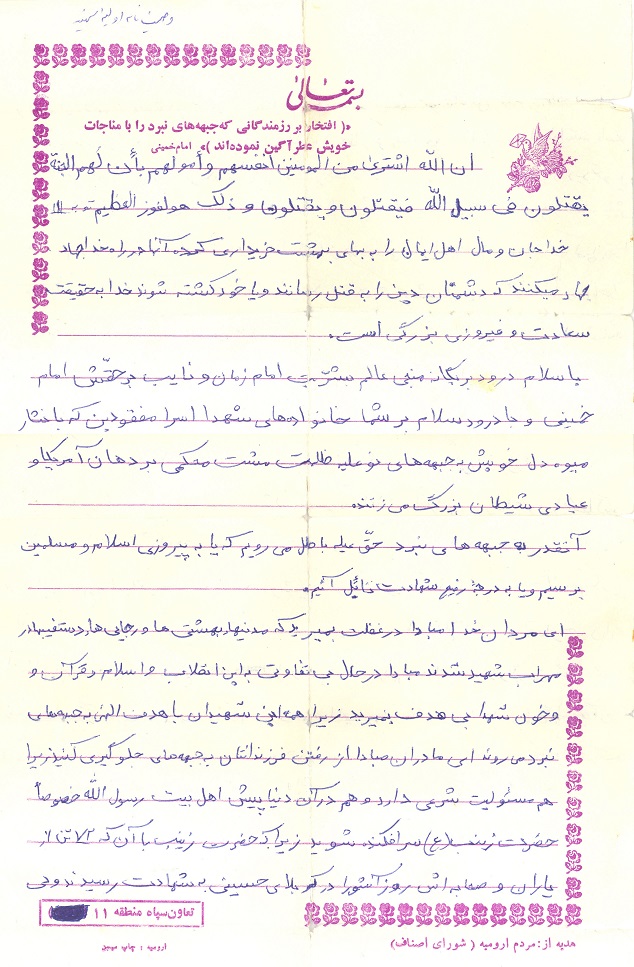 وصیت نامه اولیه شهید
بسمه تعالی
«( افتخار بر رزمندگانی که جبهه‌های نبرد را با مناجات
خویش عطرآگین نموده‌اند )» امام خمینی
ان الله اشتری من المومنین انفسهم و أمولهم بأن لهم الجنة
یقتلون فی سبیل الله فیقتلون و یقتلون و ذلک هو الفوز العظیم توبه ١١١
خدا جان و مال اهل ایمان را به بهای بهشت خریداری کرده آنها در راه خدا جهاد
میکنند که دشمنان دین را به قتل رسانند و یا خود کشته شوند خدا به حقیقت
سعادت و فیروزی بزرگی است.
با سلام درود بر یگانه منجی عالم بشریت امام زمان و نایب بر حقّش امام
خمینی و با درود سلام بر شما خانواده‌های شهدا اسرا مفقودین که با نثار
میوه دل خویش به جبهه‌های نور علیه ظلمت مشت محکمی بر دهان آمریکا و
عیادی شیطان بزرگ می زنند.
آنقدر به جبهه های نبرد حقّ علیه باطل می رویم که یا به پیروزی اسلام و مسلمین
برسیم و یا به درجهٔ رفیع شهادت نائیل آئیم.
ای مردان خدا مبادا در غفلت بمیرید که مدنیها و بهشتی ها و رجایی ها و دستغیبها در
محراب شهید شدند مبادا در حال بی تفاوتی به این انقلاب و اسلام و قرآن و
و خون شهدا بی هدف بمیرید زیرا همه این شهیدان با هدف الهی به جبهه‌های
نبرد می روند ای مادران مبادا از رفتن فرزندانتان به جبهه‌های جلوگیری کنید زیرا
هم مسئولیت شرعی دارد و هم در آن دنیا پیش اهل بیت رسول الله خصوصاً
حضرت زینب (ع) سرافکنده شوید زیرا که حضرت زینب با آن که ٧٢ تن از
یاران و صحابه اش روز عاشورا در کربلای حسینی به شهادت رسیدند ولی
تعاون سپاه منطقه ١١
هدیه از: مردم ارومیه ( شورای اصناف )
ارومیه : چاپ میهن